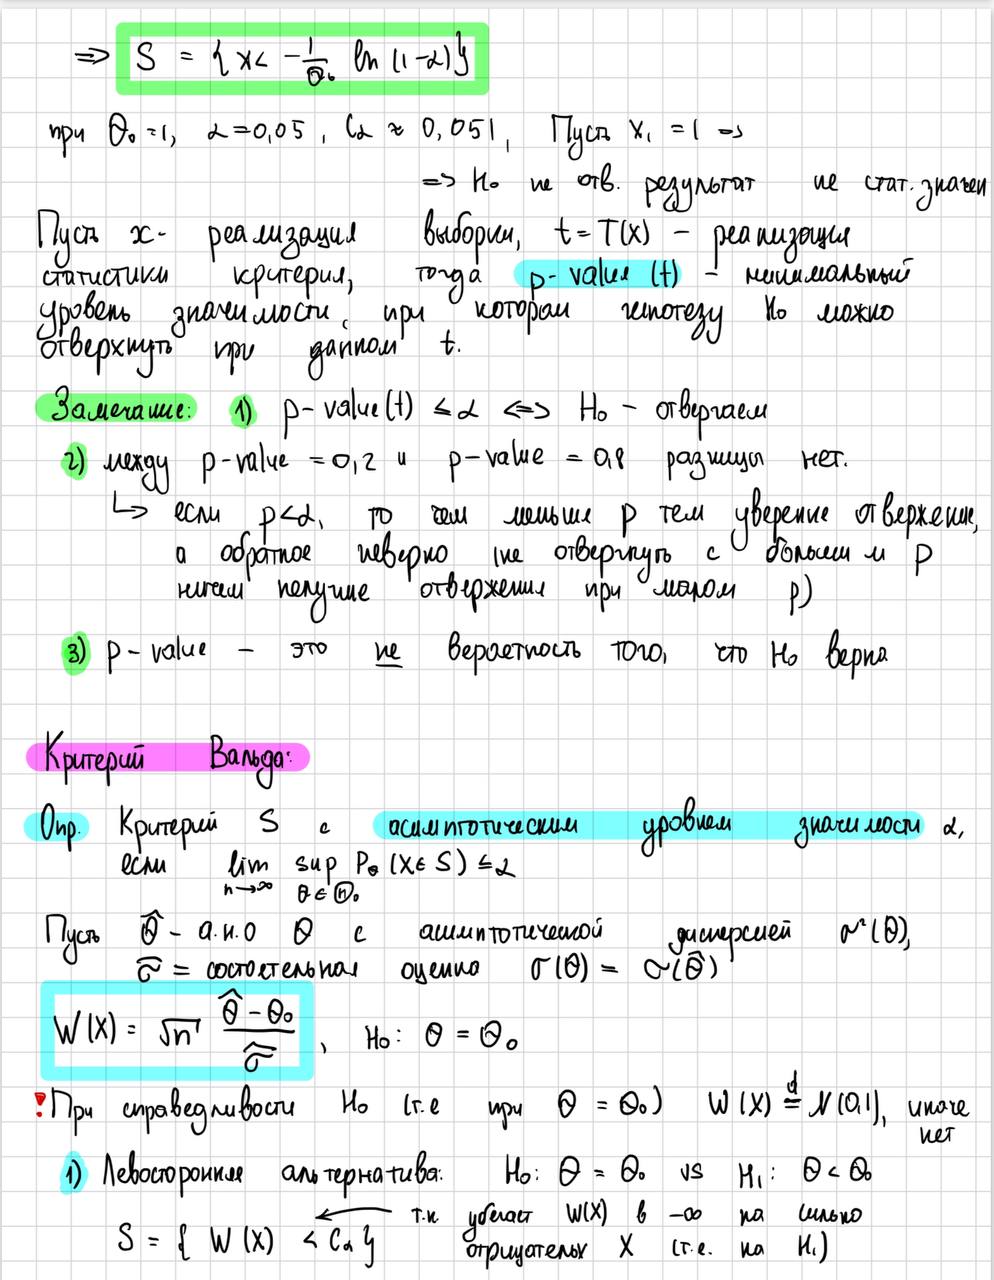 => S = { x < -1/θ₀ ln (1-α)}
при θ₀ = 1, α = 0,05, Cα ≈ 0,051, Пусть x₁ = 1 =>
=> H₀ не отв. результат не стат. значим
Пусть x - реализация выборки, t = T(x) - реализация
статистики критерия, тогда p-value (t) - минимальный
уровень значимости, при котором гипотезу H₀ можно
отвергнуть при данном t.
Замечание: 1) p-value(t) ≤ α <=> H₀ - отвергаем
2) между p-value = 0,2 и p-value = 0,8 разницы нет.
↳ если p<α, то чем меньше p тем уверенне отвержение,
а обратное неверно (не отвергнуть с большим p
ничем не лучше отвержения при малом p)
3) p-value - это не вероятность того, что H₀ верна
Критерий Вальда:
Опр. Критерий S с асимптотическим уровнем значимости α,
если lim sup P_θ (X ∈ S) ≤ α
n→∞ θ ∈ Θ₀
Пусть θ̂ - а.н.о θ с асимптотической дисперсией σ²(θ),
σ̂ = состоятельная оценка σ(θ) = σ(θ̂)
W(X) = √n (θ̂ - θ₀)/σ̂, H₀: θ = θ₀
! При справедливости H₀ (т.е при θ = θ₀) W(X) =ᵈ N(0,1), иначе
нет
1) Левосторонние альтернатива: H₀: θ = θ₀ vs H₁: θ < θ₀
S = { W(X) < Cα } ← т.к убегает W(X) в -∞ на сильно
отрицательн X (т.е. на H₁)